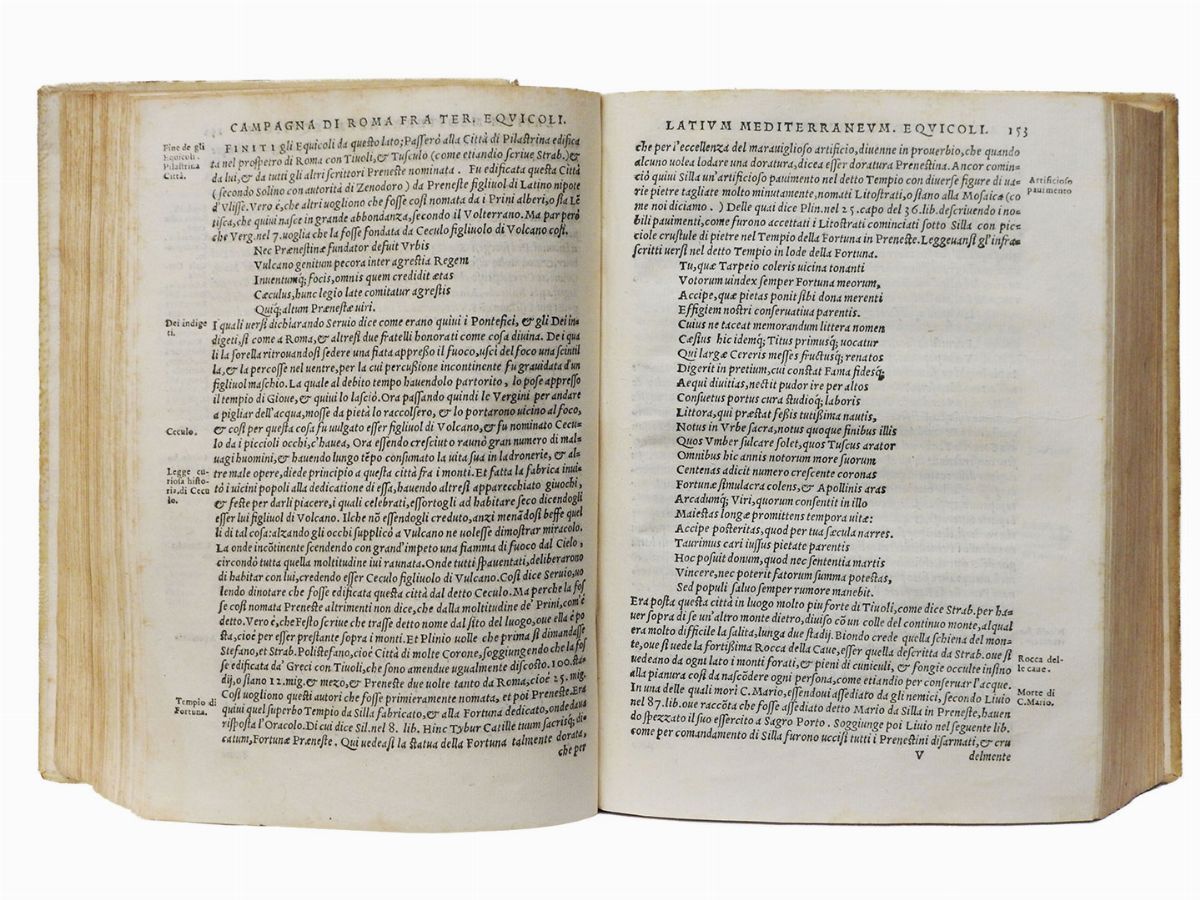 CAMPAGNA DI ROMA FRA TER. EQVICOLI.
Fine de gli
Equicoli.
Pilastrina
Città.
FINITI gli Equicoli da questo lato; Passerò alla Città di Pilastrina edifica
ta nel prospetro di Roma con Tiuoli, & Tusculo (come etiandio scriue Strab.) &
da lui, & da tutti gli altri scrittori Preneste nominata. Fu edificata questa Città
(secondo Solino con autorità di Zenodoro) da Preneste figliuol di Latino nipote
d'Vlisse. Vero è, che altri uogliono che fosse così nomata da i Prini alberi, o sia Lē
tisca, che quiui nasce in grande abbondanza, secondo il Volterrano. Ma par però
che Verg. nel 7. uoglia che la fosse fondata da Ceculo figliuolo di Volcano così.
Nec Prænestinæ fundator defuit Vrbis
Vulcano genitum pecora inter agrestia Regem
Inuentumq; focis, omnis quem credidit ætas
Cæculus, hunc legio late comitatur agrestis
Quiq; altum Præneste uiri.
Dei indige
ti.
I quali uersi dichiarando Seruio dice come erano quiui i Pontefici, & gli Dei in-
digeti, sì come a Roma, & altresi due fratelli honorati come cosa diuina. De i qua
li la sorella ritrouandosi sedere una fiata appresso il fuoco, uscì del foco una scintil
la, & la percosse nel uentre, per la cui percussione incontinente fu grauidata d'un
figliuol maschio. La quale al debito tempo hauendolo partorito, lo pose appresso
il tempio di Gioue, & quiui lo lasciò. Ora passando quindi le Vergini per andare
a pigliar dell'acqua, mosse da pietà lo raccolsero, & lo portarono uicino al foco,
Ceculo.
& così per questa cosa fu uulgato esser figliuol di Volcano, & fu nominato Cecu-
lo da i piccioli occhi, c'hauea, Ora essendo cresciuto raunò gran numero di mal-
uagi huomini, & hauendo lungo tēpo consumato la uita sua in ladronerie, & al-
Legge cu-
riosa histo-
ria, di Cecu
lo.
tre male opere, diede principio a questa città fra i monti. Et fatta la fabrica inui-
tò i uicini popoli alla dedicatione di essa, hauendo altresi apparecchiato giuochi,
& feste per darli piacere, i quali celebrati, essortogli ad habitare seco dicendogli
esser lui figliuol di Volcano. Ilche nō essendogli creduto, anzi menādosi beffe quel
li di tal cosa: alzando gli occhi supplicò a Vulcano ne uolesse dimostrar miracolo.
La onde incōtinente scendendo con grand'impeto una fiamma di fuoco dal Cielo,
circondò tutta quella moltitudine iui raunata. Onde tutti spauentati, deliberarono
di habitar con lui, credendo esser Ceculo figliuolo di Vulcano. Così dice Seruio, uo
lendo dinotare che fosse edificata questa città dal detto Ceculo. Ma perche la fos
se così nomata Preneste altrimenti non dice, che dalla moltitudine de' Prini, com'è
detto. Vero è, che Festo scriue che trasse detto nome dal sito del luogo, oue ella è po
sta, cioè per esser prestante sopra i monti. Et Plinio uolle che prima si dimandasse
Stefano, et Strab. Polistefano, cioè Città di molte Corone, soggiungendo che la fos
se edificata da' Greci con Tiuoli, che sono amendue ugualmente discosto. 100. sta-
dij. o siano 12. mig. & mezo, & Preneste due uolte tanto da Roma, cioè 25. mig.
Così uogliono questi autori che fosse primieramente nomata, et poi Preneste. Era
Tempio di
Fortuna.
quiui quel superbo Tempio da Silla fabricato, & alla Fortuna dedicato, onde daua
risposta l'Oracolo. Di cui dice Sil. nel 8. lib. Hinc Tybur Catille tuum sacrisq; di-
catum, Fortunæ Præneste. Qui uedeasi la statua della Fortuna talmente dorata,
che per
LATIVM MEDITERRANEVM. EQVICOLI. 153
che per l'eccellenza del marauiglioso artificio, diuenne in prouerbio, che quando
alcuno uolea lodar una doratura, dicea esser doratura Prenestina. Ancor comin-
ciò quiui Silla un'artificioso pauimento nel detto Tempio con diuerse figure di ua-
Artificioso
pauimento
rie pietre tagliate molto minutamente, nomati Litostrati, o siano alla Mosaica (co
me noi diciamo.) Delli quai dice Plin. nel 25. capo del 36. lib. descriuendo i no-
bili pauimenti, come furono accettati i Litostrati cominciati sotto Silla con pic-
ciole crustule di pietre nel Tempio della Fortuna in Preneste. Leggeuansi gl'infra-
scritti uersi nel detto Tempio in lode della Fortuna.
Tu, quæ Tarpeio coleris uicina tonanti
Votorum uindex semper Fortuna meorum,
Accipe, quæ pietas ponit sibi dona merenti
Effigiem nostri conseruatiua parentis.
Cuius ne taceat memorandum littera nomen
Cæsius hic idemq; Titus primusq; uocatur
Qui largæ Cereris messes fructusq; renatos
Digerit in pretium, cui constat Fama fidesq;
Aequi diuitias, nectit pudor ire per altos
Consuetus portus cura studioq; laboris
Littora, qui præstat fessis tutissima nautis,
Notus in Vrbe sacra, notus quoque finibus illis
Quos Vmber sulcare solet, quos Tuscus arator
Omnibus hic annis notorum more suorum
Centenas adicit numero crescente coronas
Fortunæ simulacra colens, & Apollinis aras
Arcadumq; Viri, quorum consentit in illo
Maiestas longæ promittens tempora uitæ:
Accipe posteritas, quod per tua sæcula narres.
Taurimus cari iussus pietate parentis
Hoc posuit donum, quod nec sententia martis
Vincere, nec poterit fatorum summa potestas,
Sed populi saluo semper rumore manebit.
Era posta questa città in luogo molto piu forte di Tiuoli, come dice Strab. per ha-
uer sopra di se un'altro monte dietro, diuiso cō un colle del continuo monte, al qual
era molto difficile la salita, lunga due stadij. Biondo crede quella schiena del mon-
te, oue si uede la fortissima Rocca della Caue, esser quella descritta da Strab. oue si
Rocca del-
le caue.
uedeano da ogni lato i monti forati, & pieni di cuniculi, & fongie occulte insino
alla pianura così da nascōdere ogni persona, come etiandio per conseruar l'acque.
Morte di
C. Mario.
In una delle quali morì C. Mario, essendoui assediato da gli nemici, secondo Liuio
nel 87. lib. oue raccōta che fosse assediato detto Mario da Silla in Preneste, hauen
do spezzato il suo essercito a Sagro Porto. Soggiunge poi Liuio nel seguente lib.
come per comandamento di Silla furono uccisi tutti i Prenestini disarmati, & cru
V delmente